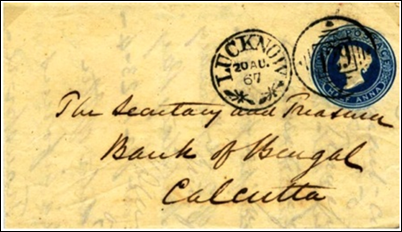 LUCKNOW
20 AU.
67
HALF ANNA
The Secretary and Treasurer
Bank of Bengal
Calcutta